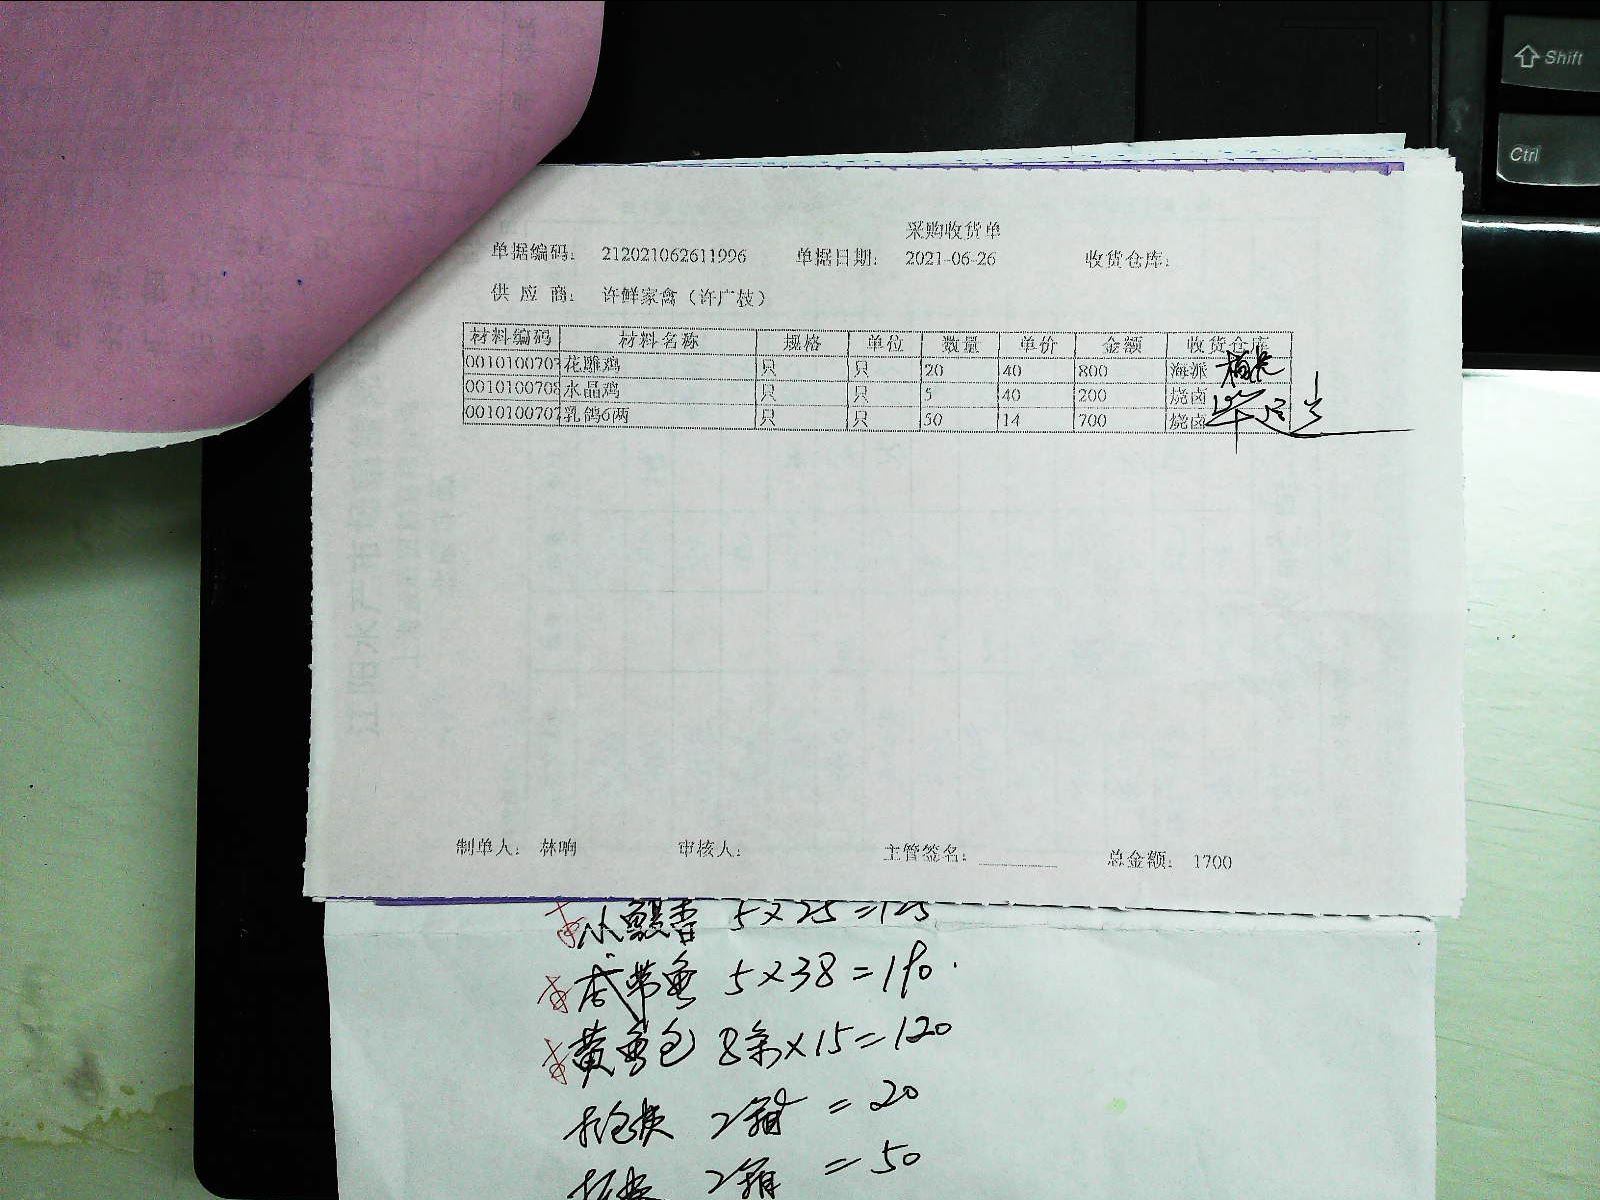 Shift
Ctrl
采购收货单
单据编码： 212021062611996 单据日期： 2021-06-26 收货仓库：
供 应 商： 许鲜家禽（许广枝）
材料编码 材料名称 规格 单位 数量 单价 金额 收货仓库
0010100703 花雕鸡 只 只 20 40 800 海派
0010100708 水晶鸡 只 只 5 40 200 烧卤
0010100707 乳鸽6两 只 只 50 14 700 烧卤
制单人： 林响 审核人： 主管签名： 总金额： 1700
5×25=125
带鱼 5×38=190
黄鱼 8条×15=120
2箱 =20
2箱 =50